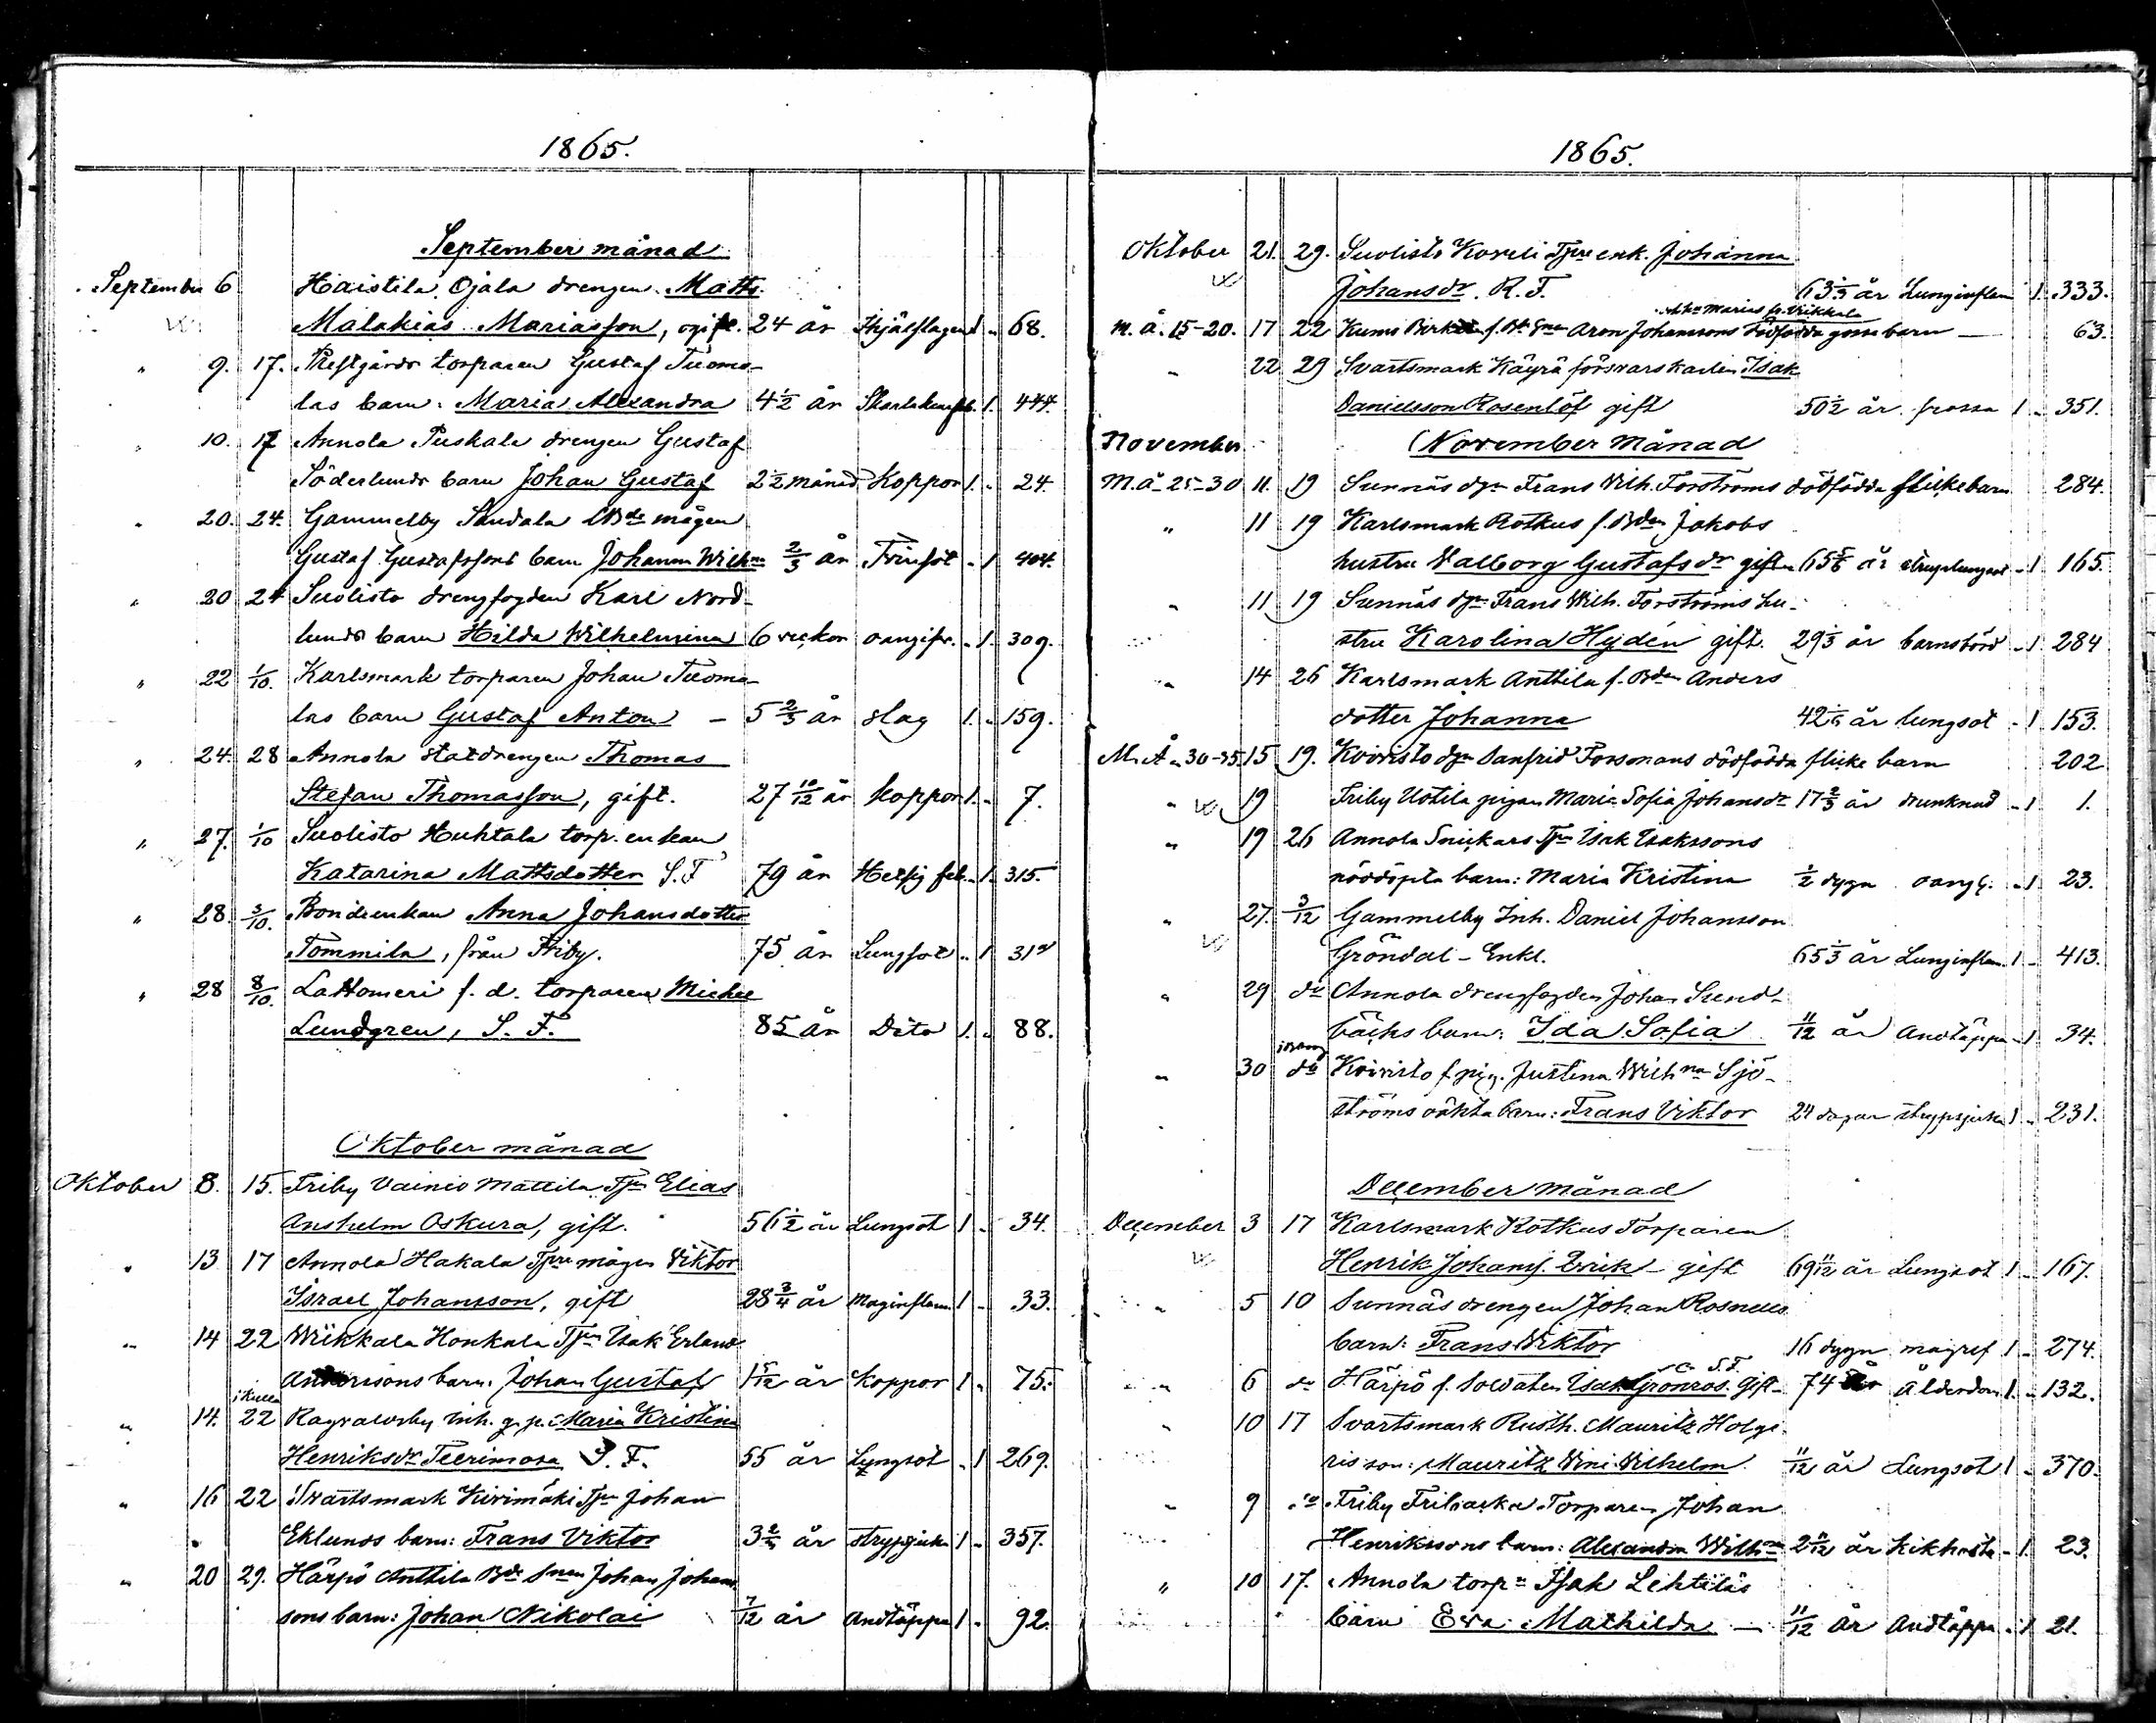 1865.
September månad
September 6 Haistila Ojala drengen Matts
Malakias Mariasson, ogift. 24 år ihjälslagen 1 " 68.
" 9. 17. Prestgårds torparen Gustaf Tuoma-
las barn Maria Alexandra 4 1/2 år 1. 444.
" 10. 17 Annola Puskala drengen Gustaf
Söderlunds barn Johan Gustaf 2 1/2 månad Koppor 1. " 24.
" 20. 24. Gammelby Sandala Bde mågen
Gustaf Gustafssons barn Johanna Wilhna 2/3 år " 1 404.
" 20 24 Suolisto drengfogden Karl Nord-
lunds barn Hilda Wilhelmina 6 veckor oangifv. " 1. 309.
" 22 1/10. Karlsmark torparen Johan Tuoma-
las barn Gustaf Anton – 5 2/3 år slag 1. " 159.
" 24. 28 Annola statdrengen Thomas
Stefan Thomasson, gift. 27 10/12 år koppor 1. " 7.
" 27. 1/10 Suolisto Huhtala torp. enkan
Katarina Mattsdotter S. F 79 år Hetsig feb. " 1. 315.
" 28. 3/10. Bondeenkan Anna Johansdotter
Tommila, från Friby. 75 år Lungsot " 1
" 28 8/10. Lattomeri f. d. torparen Michel
Lundgren, S. F. 85 år Dito 1. " 88.
Oktober månad
Oktober 8. 15. Friby Vainio Mattila Tjrn Elias
Anshelm Oskura, gift. 56 1/2 år Lungsot 1 " 34.
" 13 17 Annola Hakala Tprn mågen Viktor
Israel Johansson, gift 28 3/4 år Maginflam. 1 " 33.
" 14 22 Wiikkala Honkala Tprn Isak Erland
Anderssons barn: Johan Gustaf 1 5/12 år Koppor 1 " 75.
i Kulla
" 14. 22 Ragvaldsby Inh. g. p. Maria Kristina
Henriksdr Teerimosa S. F. 55 år Lungsot " 1 269.
" 16 22 Svartsmark Kivimäki Tprn Johan
Eklunds barn: Frans Viktor år strypsjuka 1 " 357.
" 20 29. Härpö Anttila Bde Snen Johan Johans
sons barn: Johan Nikolai 7/12 år Andtäppa 1 " 92.
1865.
Oktober 21. 29. Suolisto Koveli Tpre enk. Johanna
Johansdr. R. F. 63 1/3 år Lunginflam 1. 333.
fr. Viikkala
M. Å. 15-20. 17 22 Kumo Aron Johanssons dödfödda gosse barn — 63.
" 22 29 Svartsmark Käyrä försvarskarlen Isak
Danielsson Rosenlöf gift 50 1/2 år frossa 1 " 351.
November November månad
M. Å. 25-30 11. 19 Sunnäs dgn Frans Wilh. Forströms dödfödda flickebarn 284.
" 11 19 Karlsmark Rotkus f. Bden Jakobs
hustru Valborg Gustafsdr gift 65 5/6 år " 1 165.
" 11 19 Sunnäs dgn Frans Wilh. Forströms hu-
stru Karolina Hydén gift. 29 1/3 år barnsbörd " 1 284
" 14 26 Karlsmark Anttila f. Bden Anders
dotter Johanna år lungsot " 1 153.
M. Å. 30-35. 15 19. Koivisto dgn Sanfrid Forsmans dödfödda flicke barn 202
" 19 Friby Uotila pigan Maria Sofia Johansdr 17 2/3 år drunknad " 1 1.
" 19 26 Annola Snickars Tprn Isak Isakssons
nöddöpta barn: Maria Kristina 1/2 dygn oangif. " 1 23.
" 27. 3/12 Gammelby Inh. Daniel Johansson
Gröndal – Enkl. 65 1/3 år Lunginflam. 1 " 413.
" 29 do Annola drengfogden Johan Sund-
bäcks barn: Ida Sofia 11/12 år Andtäppa " 1 34.
" 30 do Koivisto f. pig. Justina Wilhna Sjö-
ströms oäkta barn: Frans Viktor 24 dagar strypsjuka 1 " 231.
December månad
December 3 17 Karlsmark Rotkus Torparen
Henrik Johans. Erik – gift 69 11/12 år Lungsot 1 " 167.
" 5 10 Sunnäs drengen Johan Rosnells
barn: Frans Viktor 16 dygn magref 1 " 274.
" 6 do Härpö f. Soldaten Isak Grönros. S. F. Gift 74 år Ålderdom 1 " 132.
" 10 17 Svartsmark Rusth. Mauritz Holge-
ris son: Mauritz Wilhelm 11/12 år Lungsot 1 " 370.
" 9 do Friby Fribacka Torparen Johan
Henrikssons barn: Alexandra Wilhna 2 11/12 år Kikhosta " 1. 23.
" 10 17. Annola torpn Isak Lehtiläs
barn Eva Mathilda — 11/12 år Andtäppa " 1 21.